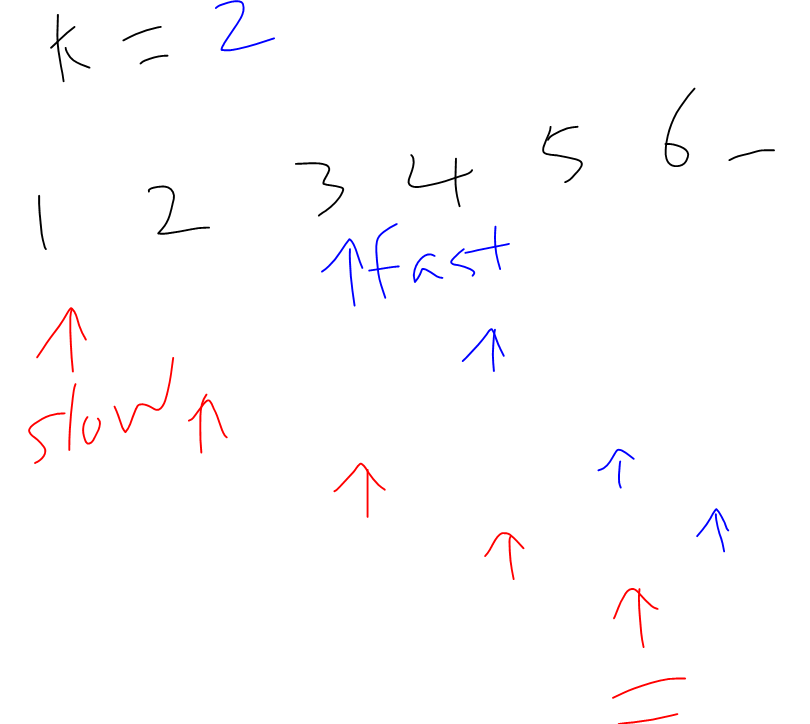 k = 2
1 2 3 4 5 6 -
↑fast
↑
↑
slow ↑
↑
↑
↑
↑
↑
=